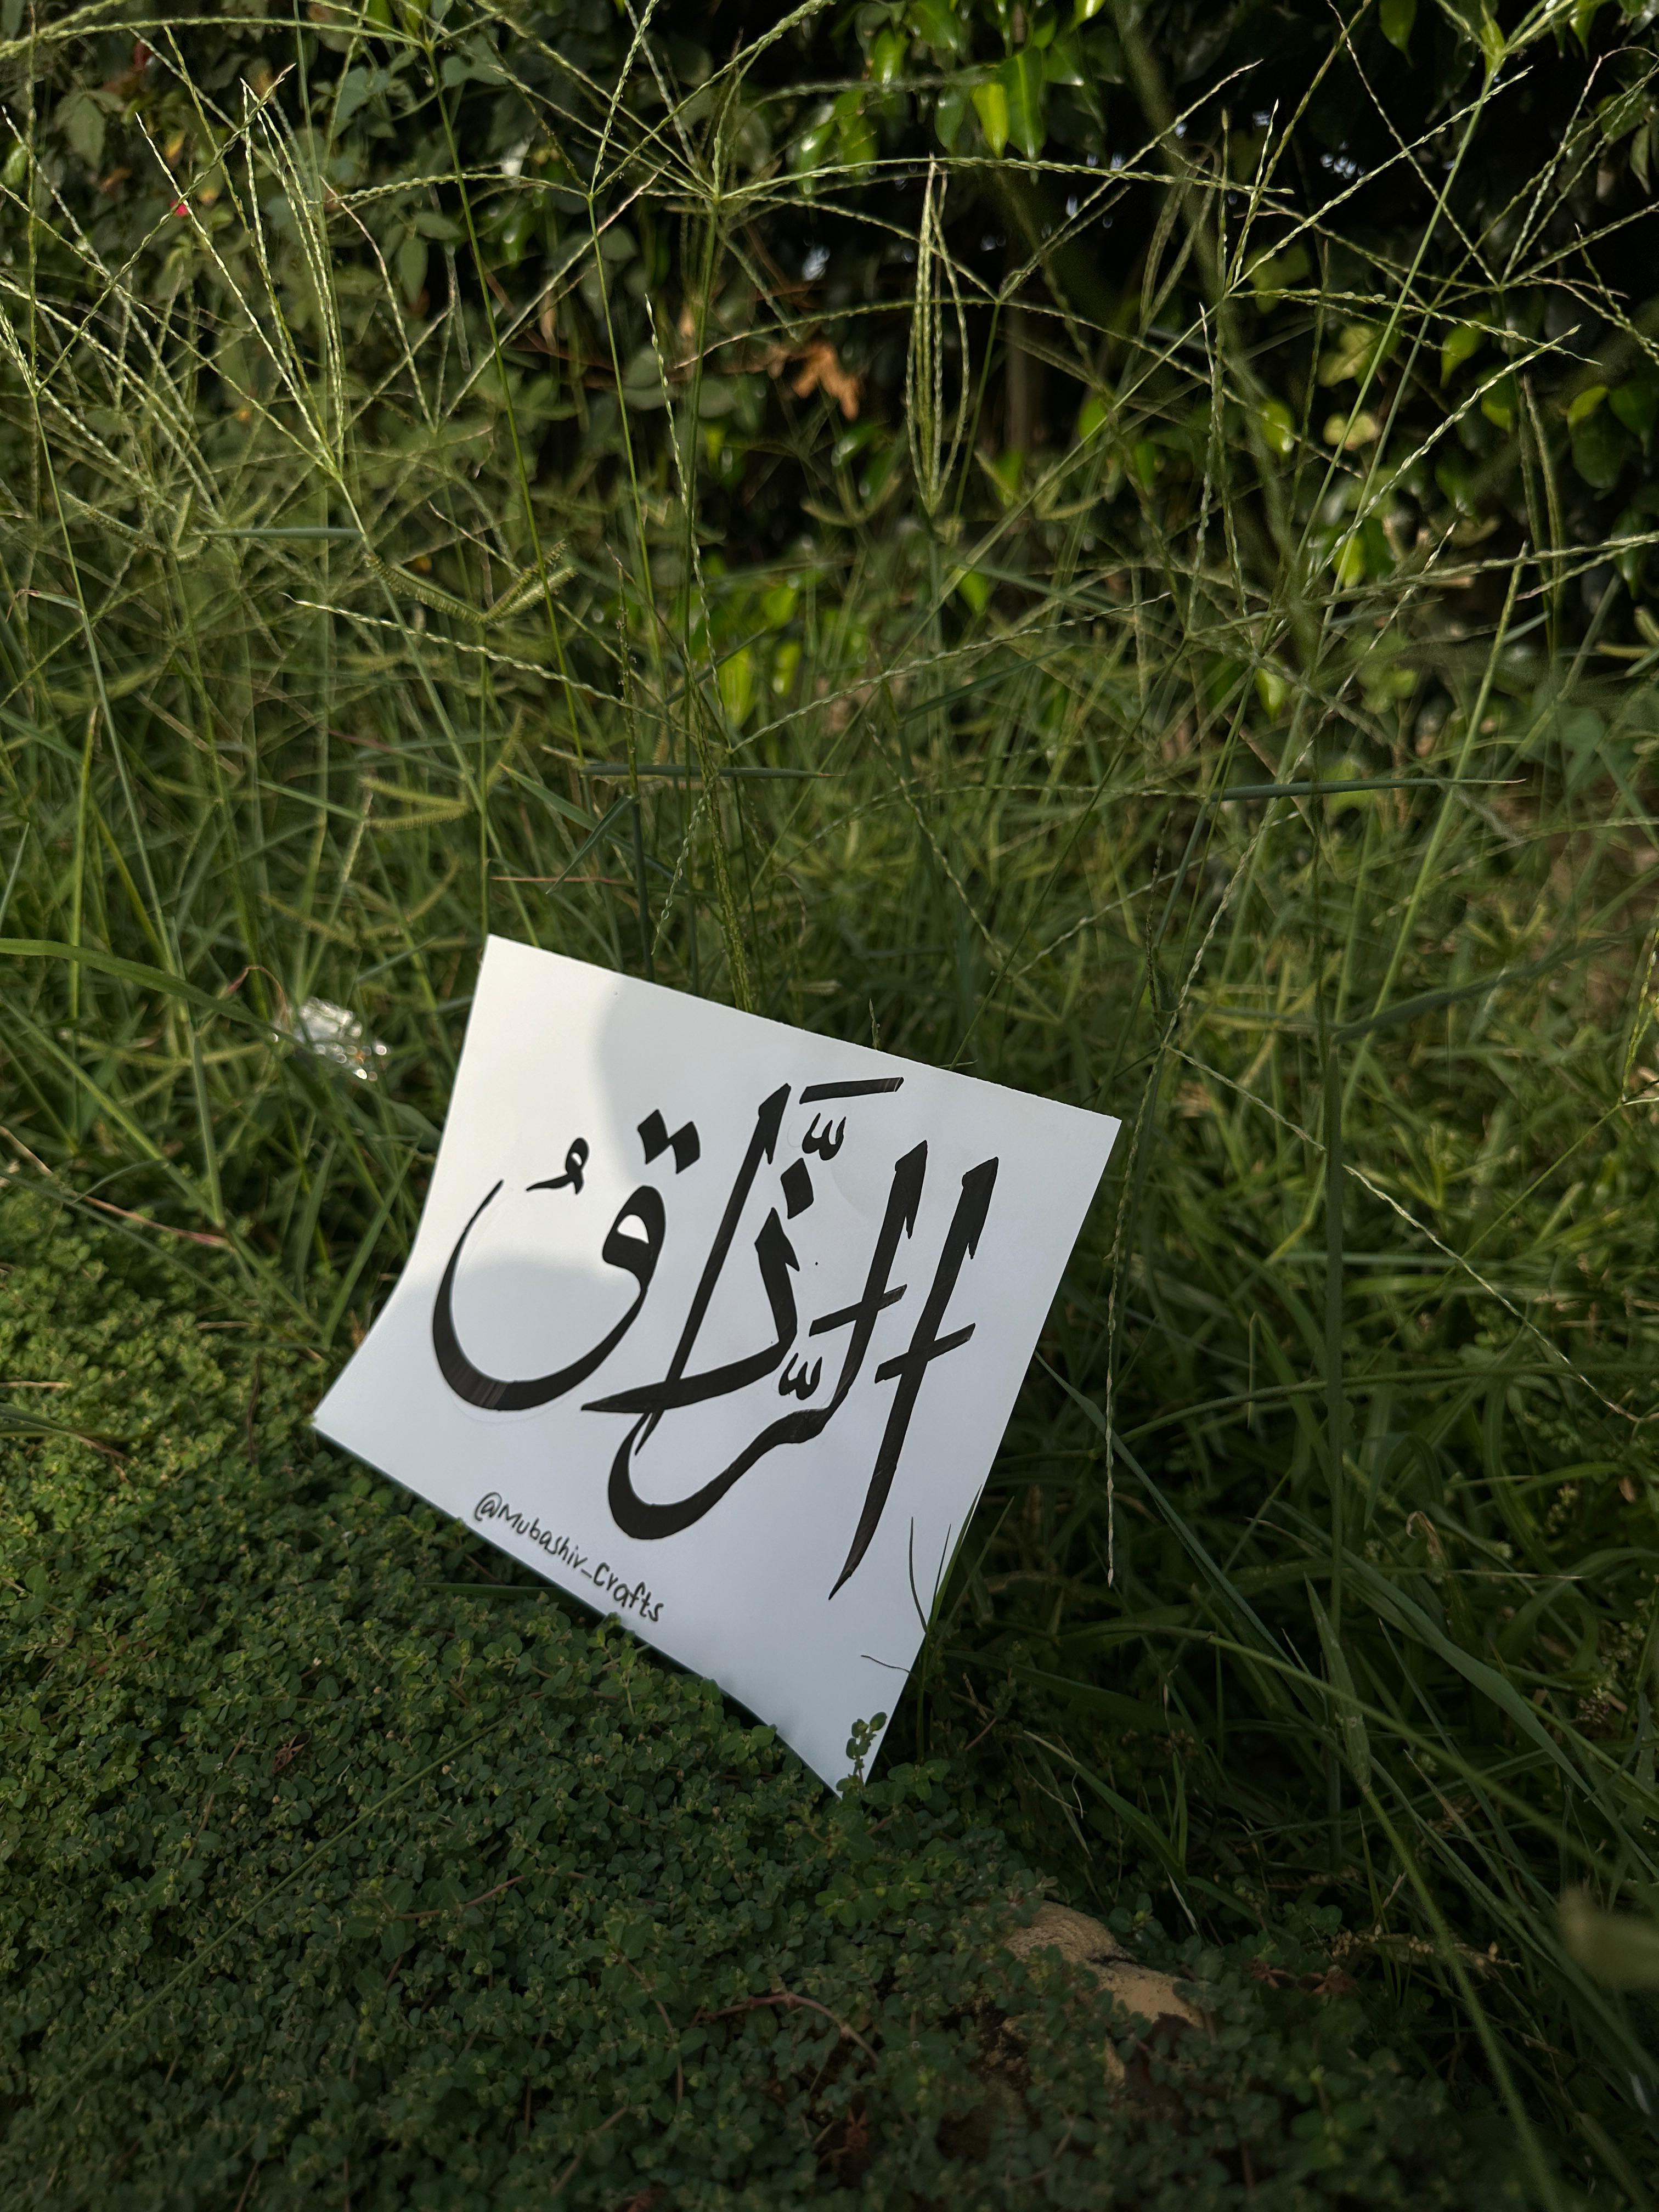 الرَّزَّاقُ
@Mubashir_Crafts